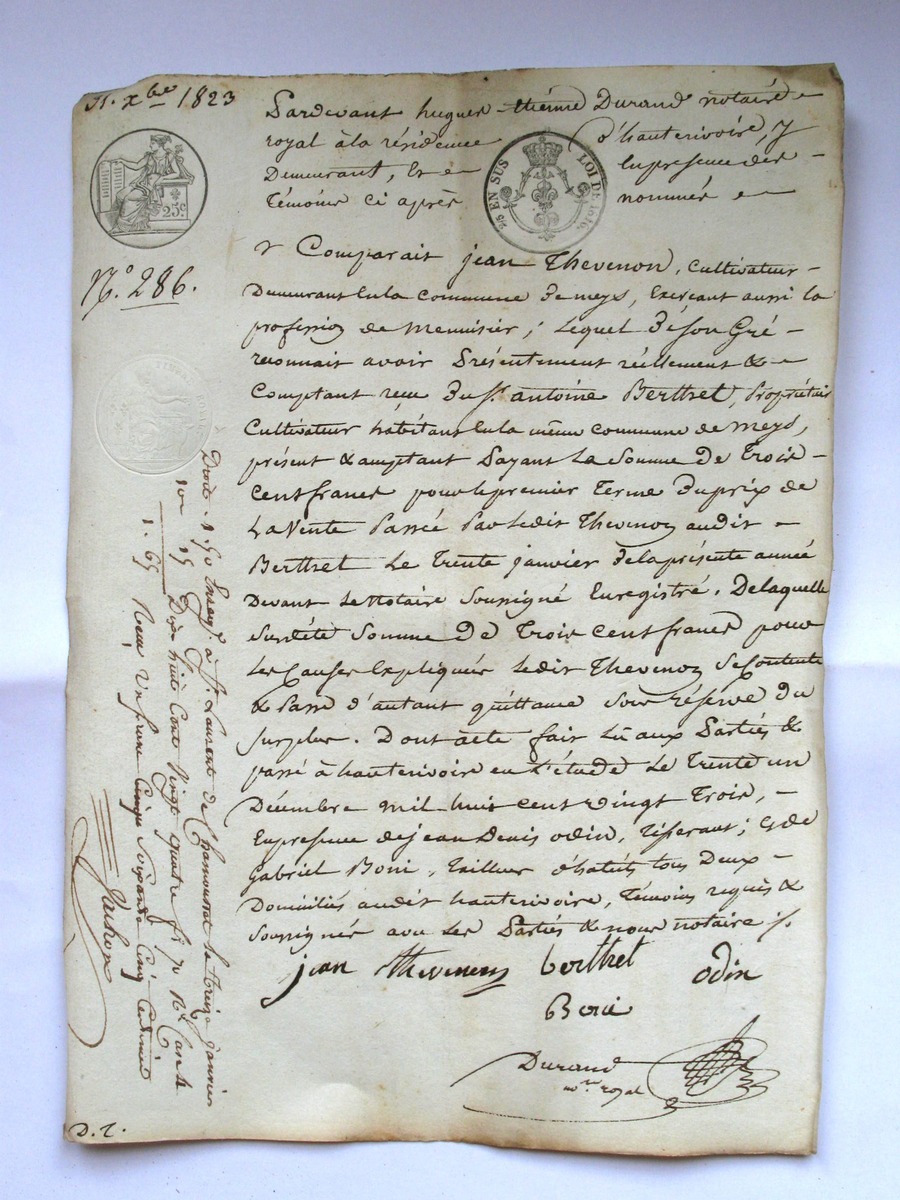 31. xbre 1823
Pardevant hugues-thérème Durand notaire
royal à la résidence d'hauterivoire, y
Demeurant, Et en Enpresence des
Témoins ci après nommés
25c.
25 EN SUS LOI DE 1816.
Comparait jean Thevenon, Cultivateur
Demeurant En la commune de meys, Exerçant aussi la
profession de Menuisier; Lequel De son Gré
reconnait avoir Présentement réellement &
Comptant recu Du sr. antoine Berthet, propriétaire
Cultivateur habitant En la même commune de Meys,
présent & acceptant Payant La Somme de Trois
Cent francs pour le premier Terme Du prix de
La Vente Passée Par Ledit Thevenon audit
Berthet Le Trente janvier De la présente année
Devant Le Notaire Soussigné Enregistré. De laquelle
Susdité Somme De Trois Cent francs pour
Les Causes Expliquées Ledit Thevenon Se Contente
& Passe d'autant quittance Sous réserve du
Surplus. Dont acte fait Lu aux Parties &
passé à hauterivoire en L'étude Le Trente un
Décembre mil huit cent vingt Trois,
Enpresence de jean Denis odin, Tisserant; Et de
Gabriel Boni, Tailleur d'habits tous Deux
Domiciliés audit hauterivoire, Témoins requis &
Soussignés avec Les Parties & nous notaire ./.
jean thevenon berthet odin
Boni
Durand
nre royal
No. 286.
Droits 1.50 Enreg. à St. Laurent de Chamousset le treize janvier
10e 15 Dix huit Cent Vingt quatre fo. 70 Ro. Case 4
1. 65 Recu Un franc Cinq Soixante Cinq Centimes
Jachon
D. T.